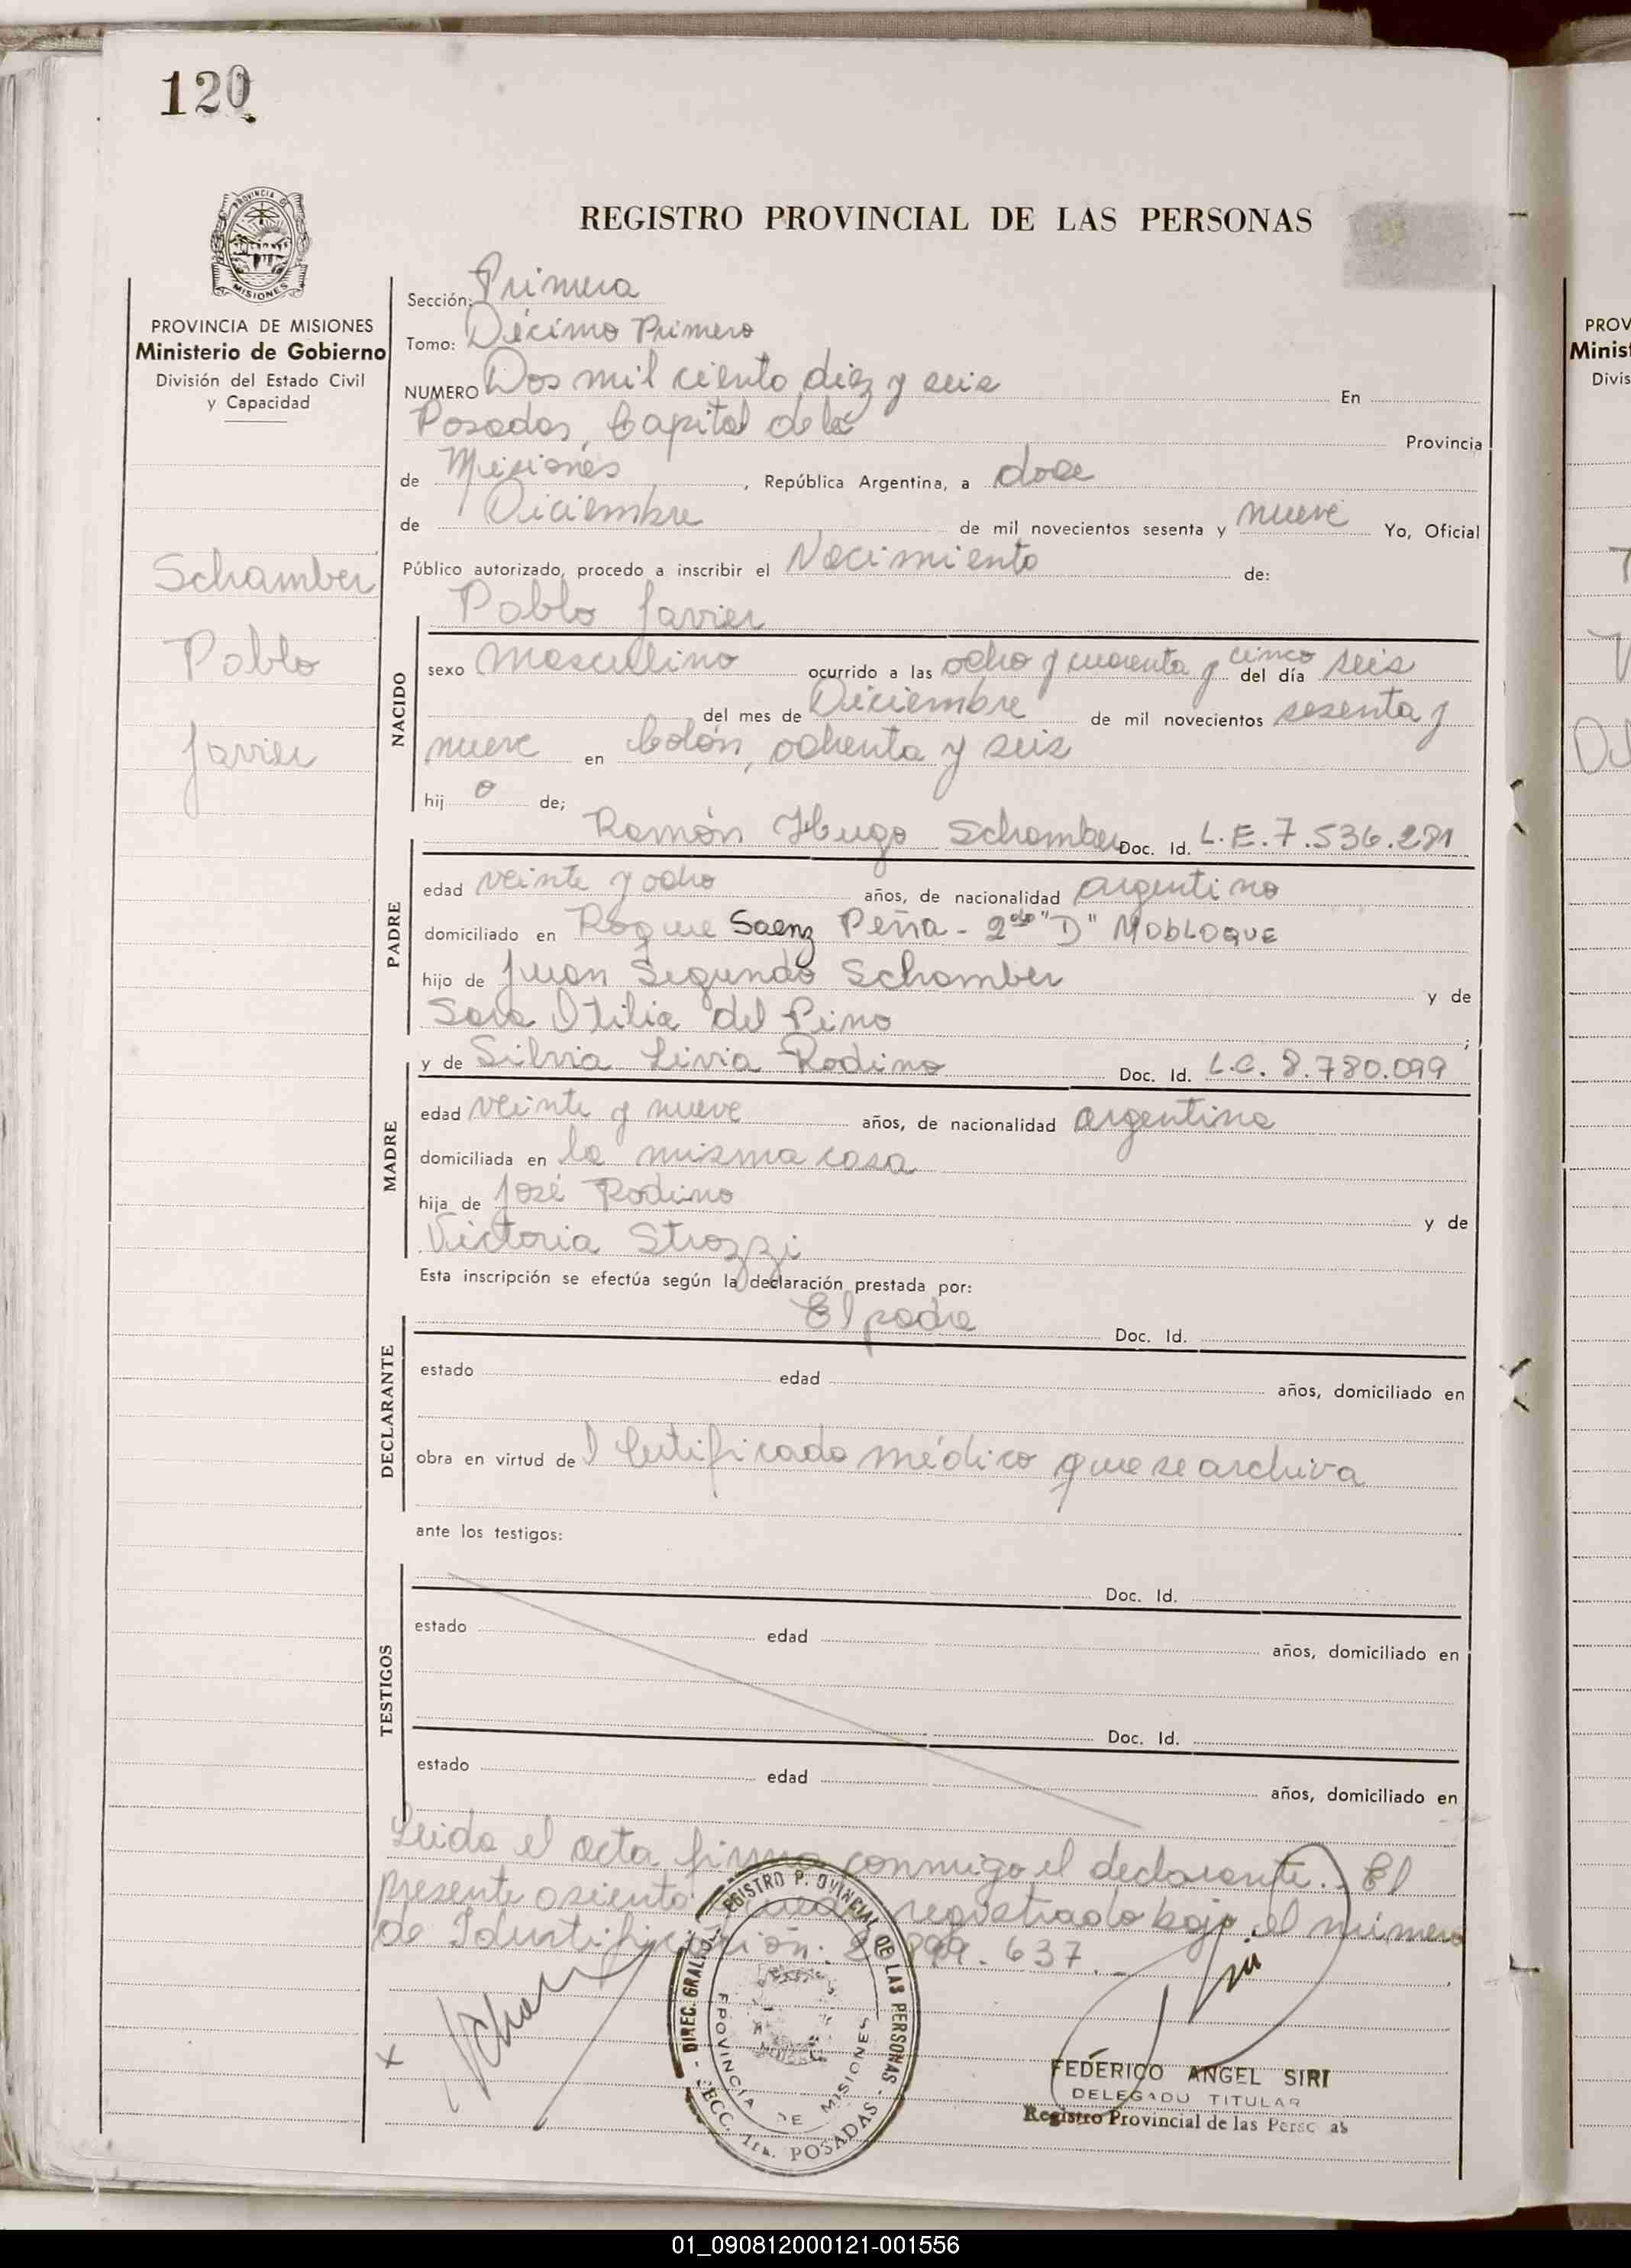 120
REGISTRO PROVINCIAL DE LAS PERSONAS
PROVINCIA DE MISIONES
Ministerio de Gobierno
División del Estado Civil
y Capacidad
Schamber
Pablo
Javier
Sección: Primera
Tomo: Décimo Primero
NUMERO Dos mil ciento diez y seis En
Posadas, Capital de la Provincia
de Misiones, República Argentina, a doce
de Diciembre de mil novecientos sesenta y nueve Yo, Oficial
Público autorizado, procedo a inscribir el Nacimiento de:
Pablo Javier
NACIDO
sexo Masculino ocurrido a las ocho y cuarenta y cinco del día seis
del mes de Diciembre de mil novecientos sesenta y
nueve en Colón, ochenta y seis
hij o de;
Ramón Hugo Schamber Doc. Id. L.E. 7.536.281
PADRE
edad veinte y ocho años, de nacionalidad argentino
domiciliado en Roque Saenz Peña - 2do "D" MOBLOQUE
hijo de Juan Segundo Schamber y de
Sara Otilia del Pino ;
y de Silvia Livia Rodino Doc. Id. L.C. 8.780.099
MADRE
edad veinte y nueve años, de nacionalidad argentina
domiciliada en la misma casa
hija de José Rodino y de
Victoria Strozzi
Esta inscripción se efectúa según la declaración prestada por:
El padre Doc. Id.
DECLARANTE
estado edad años, domiciliado en
obra en virtud de l Certificado médico que se archiva
ante los testigos:
Doc. Id.
TESTIGOS
estado edad años, domiciliado en
Doc. Id.
estado edad años, domiciliado en
Leida el acta firma conmigo el declarante.. El
presente asiento queda registrado bajo el número
de Identificación: 637.-
x Scham
DIREC. GRAL. DEL REGISTRO PROVINCIAL DE LAS PERSONAS -
SECC. 1ra. POSADAS -
PROVINCIA DE MISIONES
FEDERICO ANGEL SIRI
DELEGADO TITULAR
Registro Provincial de las Persc as
PROV
Minist
Divis
01_090812000121-001556